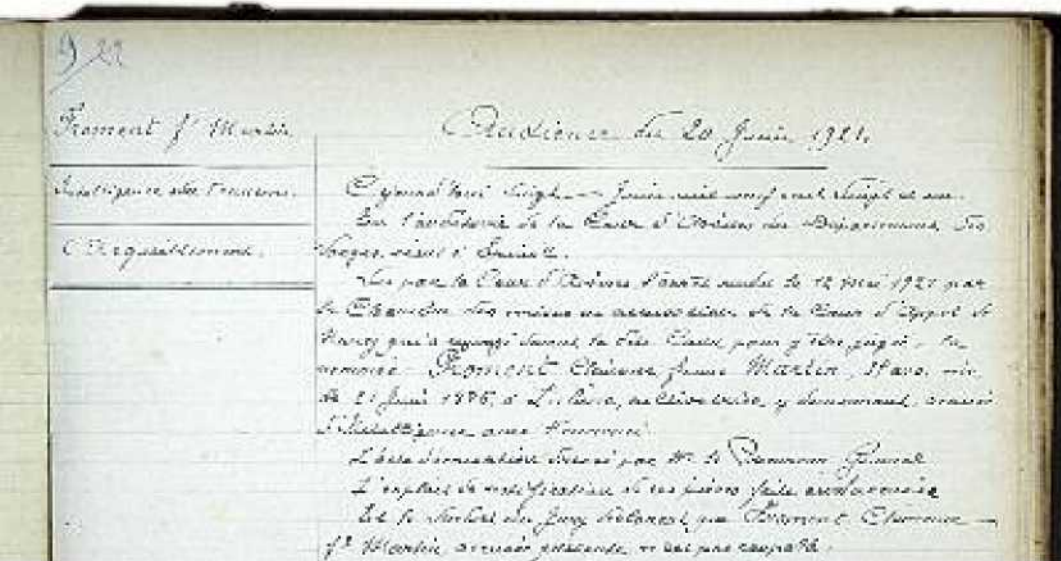 9/22
Froment fe Martin
Audience du 20 Juin 1921.
Intelligence avec l'ennemi.
Acquittement.
Aujourd'hui vingt Juin mil neuf cent vingt et un.
En l'audience de la Cour d'Assises du Département des
Vosges, séant à Epinal.
Vu par la Cour d'Assises l'arrêt rendu le 12 Mai 1921 par
la Chambre des mises en accusation de la Cour d'Appel de
Nancy qui a renvoyé devant la dite Cour, pour y être jugée, la
nommée Froment Clémence, femme Martin, ans, née
le 21 Juin 1876, à, y demeurant, accusée
d'Intelligence avec l'ennemi.
L'acte d'accusation dressé par M. le Procureur Général
L'exploit de notification de ces pièces faite à l'accusée
Et le verdict du Jury déclarant que Froment Clémence
fe Martin, accusée présente, n'est pas coupable.